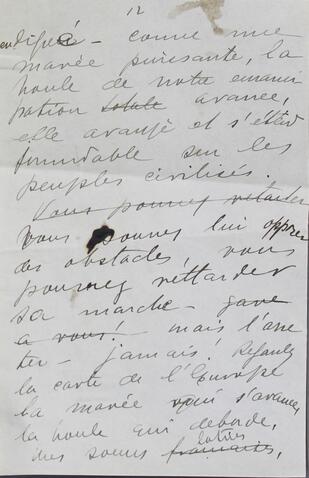 12
endiguée – comme une
marée puissante, la
houle de notre emanci
pation totale avance,
elle avance et s'étend
formidable sur les
peuples civilisés.
Vous pouvez retarder
vous pouvez lui opposer
des obstacles, vous
pourrez rettarder
sa marche – gare
a vous! mais l'arre
ter – jamais! Regardez
la carte de l'Europe
la marée qui s'avance,
la houle qui deborde,
des soeurs latines françaises,